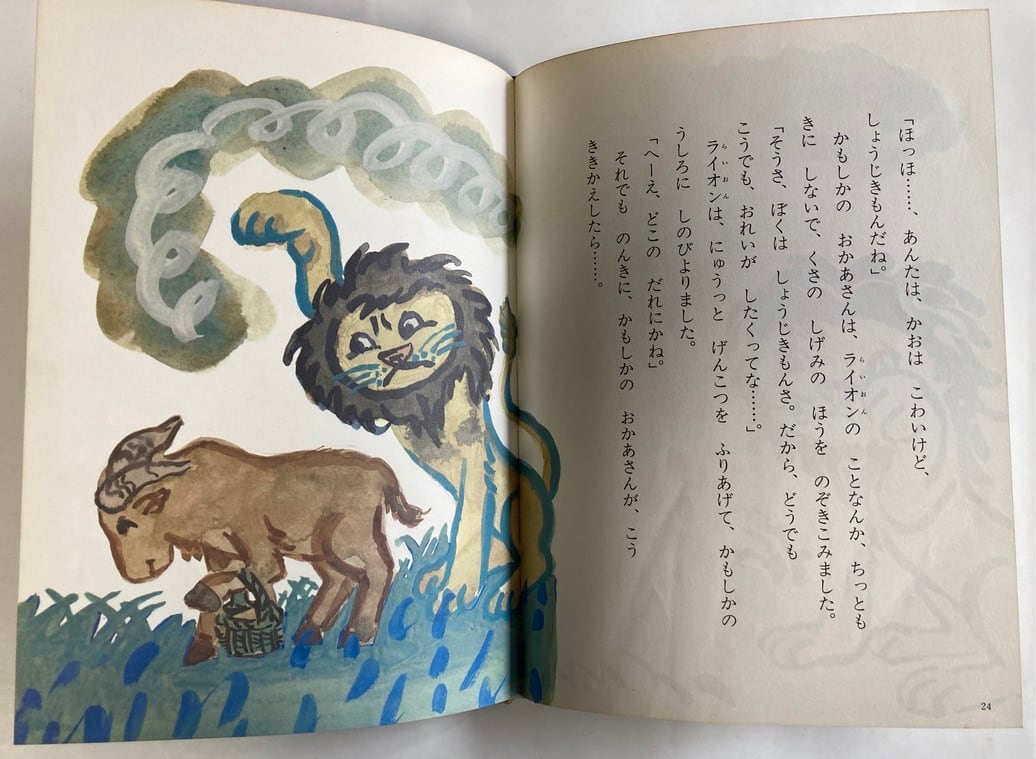 「ほっほ……、あんたは、かおは こわいけど、
しょうじきもんだね。」
かもしかの おかあさんは、ライオンの ことなんか、ちっとも
らいおん
きに しないで、くさの しげみの ほうを のぞきこみました。
「そうさ、ぼくは しょうじきもんさ。だから、どうでも
こうでも、おれいが したくってな……。」
ライオンは、にゅうっと げんこつを ふりあげて、かもしかの
らいおん
うしろに しのびよりました。
「へーえ、どこの だれにかね。」
それでも のんきに、かもしかの おかあさんが、こう
ききかえしたら……。
24